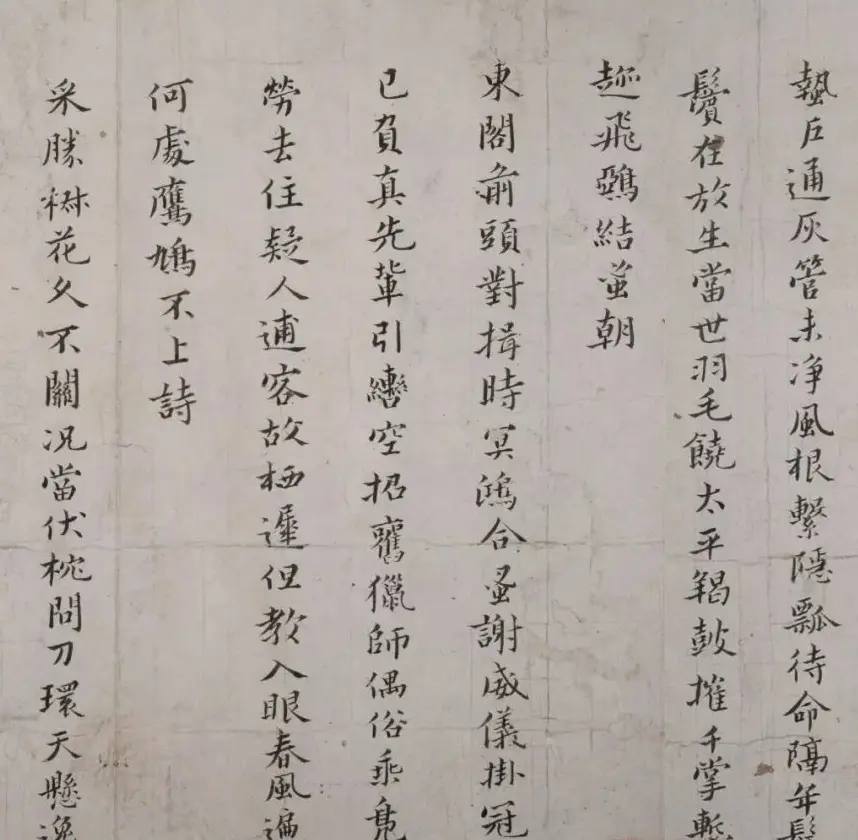 蟄戶通灰管未淨風根繫隱瓢待命隔年髩
鬢在放生當世羽毛饒太平羯鼓摧千掌暫
趂飛鷄結蚤朝
東閣前頭對揖時冥鴻合蚤謝威儀掛冠
已負真先輩引轡空招舊獵師偶俗乘鳧
勞去住疑人逋客故栖遲但教入眼春風遍
何處鷹鳩不上詩
采勝楙花久不關況當伏枕問刀環天懸逸